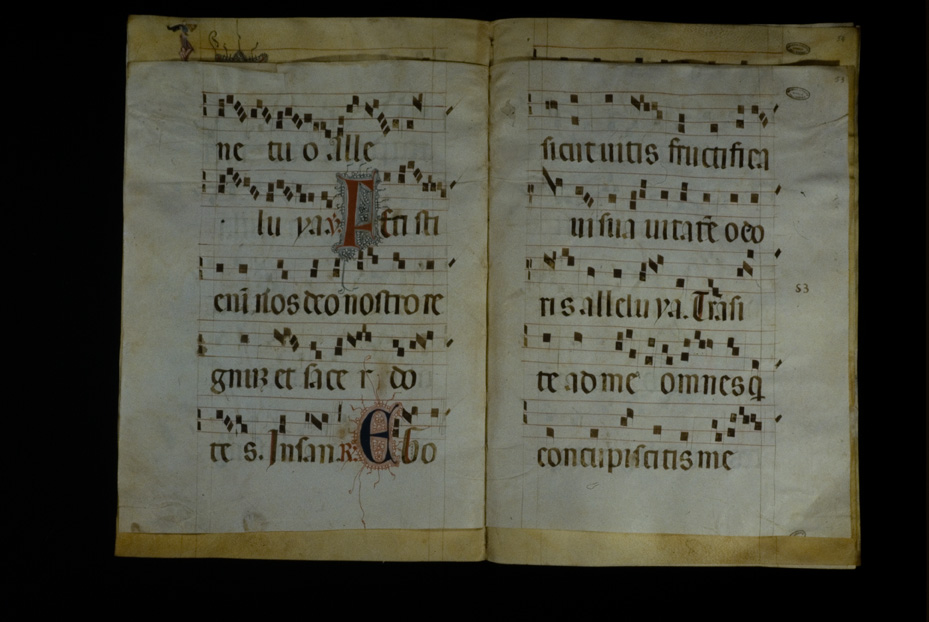 ne tu o. Alle
lu ya. ℣ Feci sti
eni᷑ nos deo nostro re
gnuꝫ et sace r do
te s. In san. R. Ego
sicut uitis fructifica
ui sua uitatē odo
ris alleluya. Trāsi
te ad me omnes q̄
concupiscitis me
53